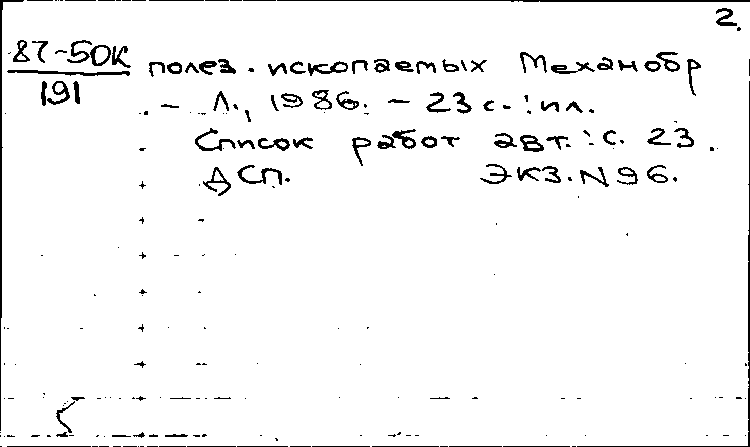 2.
87-50К полез. ископаемых Механобр
191
. - Л., 1986. - 23 с. : ил.
Список работ авт.: с. 23.
ДСП. ЭКЗ. N 96.